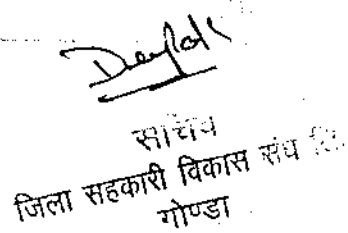 सचिव
जिला सहकारी विकास संघ लि.
गोण्डा